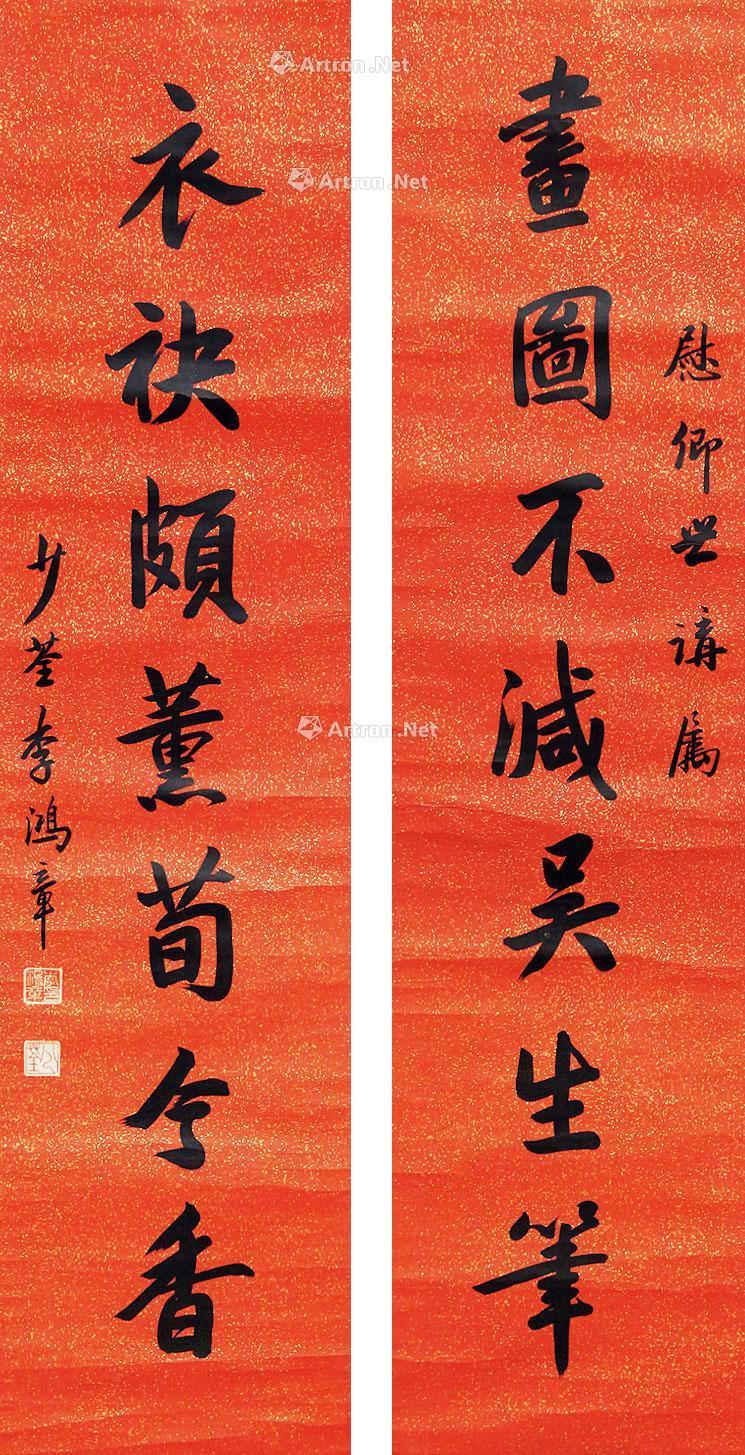 慰卿世講属
畫圖不減吴生筆
衣袂頗薰荀令香
少荃李鴻章
Artron.Net
Artron.Net
Artron.Net